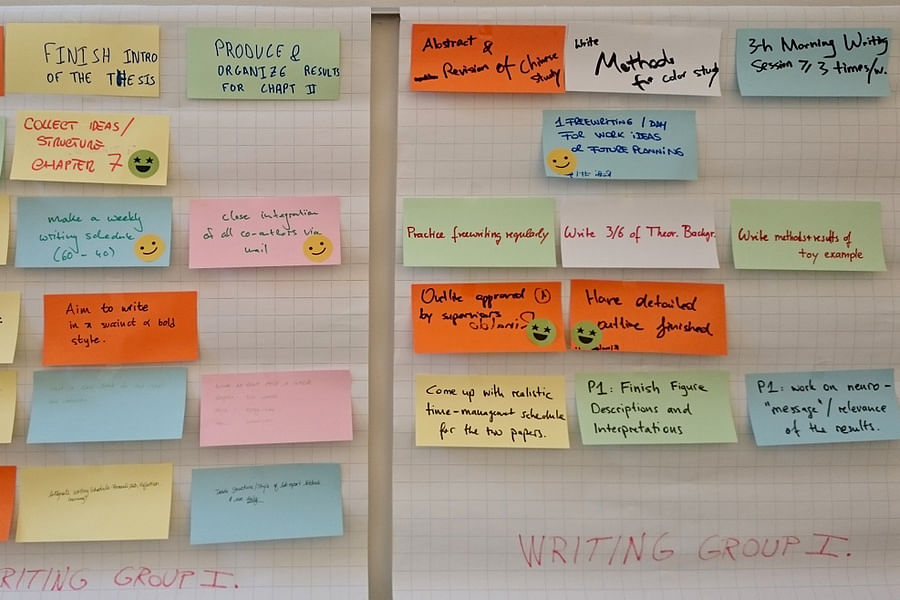 FINISH INTRO
OF THE THESIS
PRODUCE &
ORGANIZE RESULTS
FOR CHAPT II
COLLECT IDEAS/
STRUCTURE
CHAPTER 7
make a weekly
writing schedule
(60' - 40)
close integration
of all co-authors via
mail
Aim to write
in a succinct & bold
style.
RITING GROUP I.
Abstract &
Revision of Chinese
study
Write
Methods
for color study
3-h Morning Writing
Session 3 times/w.
1 FREEWRITING / DAY
FOR WORK IDEAS
or FUTURE PLANNING
Practice freewriting regularly
Write 3/6 of Theor. Backgr.
Write methods+results of
toy example
Outline approved
by supervisors
Have detailed
outline finished
Come up with realistic
time-managment schedule
for the two papers.
P1: Finish Figure
Descriptions and
Interpretations
P1: work on neuro-
"message"/ relevance
of the results.
WRITING GROUP I.